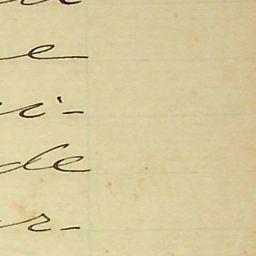 e
i-
de
r-